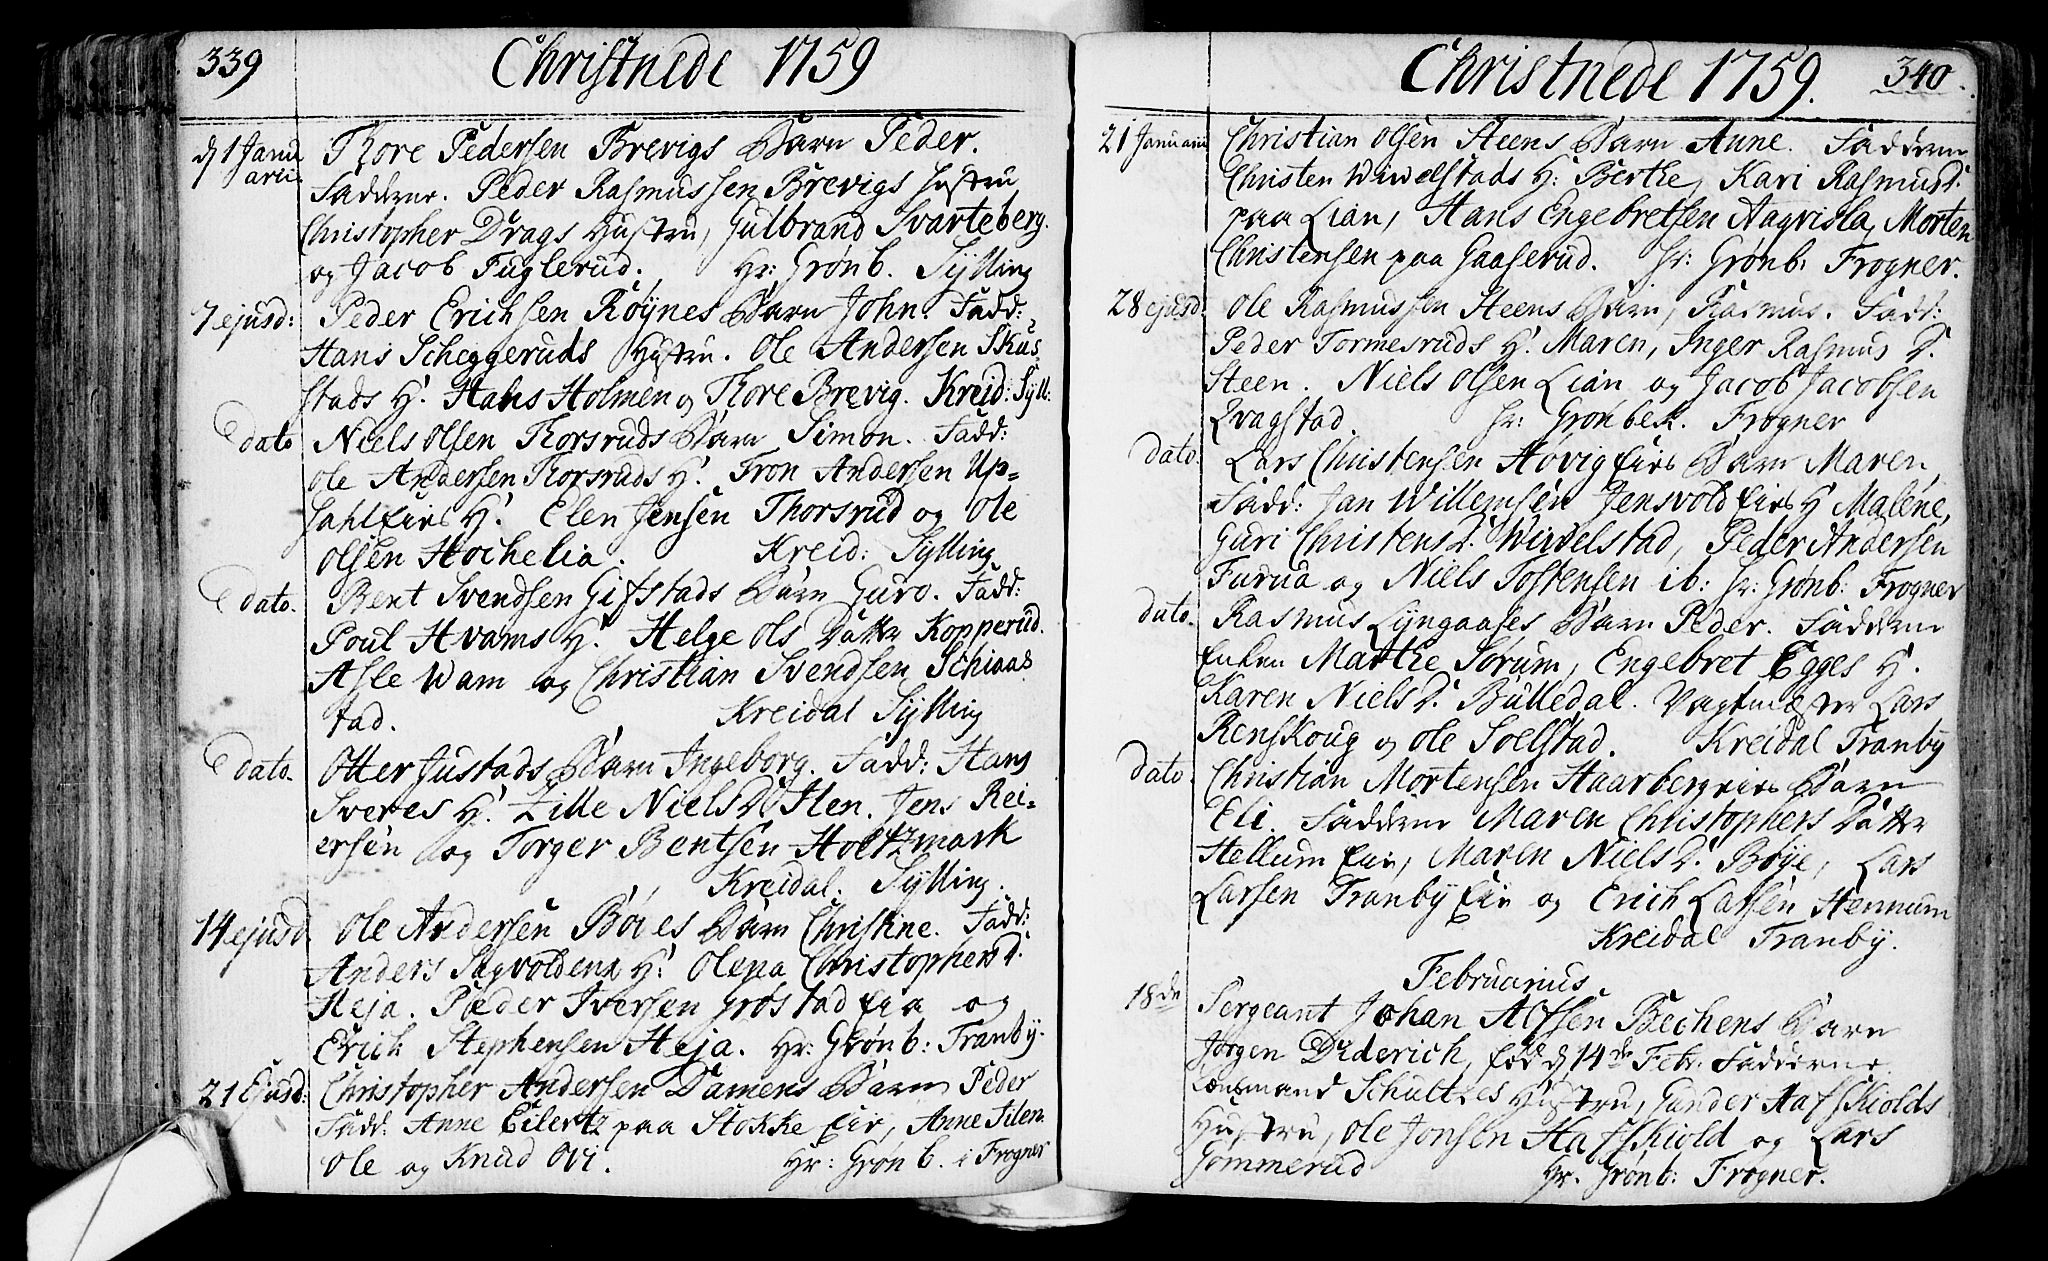 339 Christnede 1759
d 1 Janu Thore Pedersen Brevigs Barn Peder.
arii. Fadderne. Peder Rasmussen Brevigs Hustru
Christopher Drags Hustru, Gulbrand Svarteberg.
og Jacob Fuglerud. Hr: Grønb. Sylling
7 ejusd: Peder Erichsen Röynes Barn John. Fadd:
Hans Scheggeruds Hustru. Ole Andersen Skus=
stads H. Hans Holmen og Thore Brevig. Kreid: Syll:
dato Niels Olsen Thorsruds Barn Simon. Fadd:
Ole Andersen Thorsruds H. Tron Andersen Up=
sahleies H. Elen Jensen Thorsrud og Ole
Olsen Hochelia. Kreid: Sylling
dato. Bent Svendsen Gifstads Barn Guro. Fadd:
Poul Hvams H. Helge Ols Datter Kopperud.
Asle Wam og Christian Svendsen Schiaas
tad. Kreidal Sylling
dato. Otter Justads Barn Ingeborg. Fadd: Hans
Sveres H. Zille Niels D. Hen. Jens Rei=
ersen og Torger Bentsen Holtzmark
Kreidal. Sylling.
14 ejusd. Ole Andersen Böies Barn Christine. Fadd:
Anders Sagvoldens H. Olena Christophers D.
Heja. Peder Iversen Grøstad Eia og
Erich Stephensen Heja. Hr: Grønb: Tranby.
21 Ejusd: Christopher Andersen Damens Barn Peder
Fadd: Anne Eilertz paa Stokke Eie, Anne Silen.
Ole og Knud Ovi. Hr: Grønb. i Frogner
Christnede 1759. 340.
21 Januarii Christian Olsen Steens Barn Anne. Fadderne
Christen Wivelstads H: Berthe, Kari Rasmus D.
paa Lian, Hans Engebretsen Aagvisla, Morten
Christensen paa Gaaserud. Hr: Grønb: Frogner.
28 ejusd. Ole Rasmussen Steens Barn, Rasmus. Fadd:
Peder Tormesruds H. Maren, Inger Rasmus D.
Steen. Niels Olsen Lian og Jacob Jacobsen
Qvagstad. Hr: Grønbek. Frogner
dato. Lars Christensen Høvigeies Barn Maren
Fadd: Jan Willemsen Jensvold Eies H. Malene,
Guri Christens D. Wivelstad, Peder Andersen
Furua og Niels Tostensen ib: Hr: Grønb: Frogner
dato. Rasmus Lyngaases Barn Peder. Fadderne
Enken Marthe Sørum, Engebret Egges H.
Karen Niels D. Bulledal. Vagtmæster Lars
Renskoug og Ole Solstad. Kreidal Tranby
dato. Christian Mortensen Haarbergeies Barn
Eli. Fadderne Maren Christophers Datter
Hellum Eie, Maren Niels D. Bøye, Lars
Larsen Tranby Eie og Erich Larsen Hennum
Kreidal Tranby.
Februarius
18de Sergeant Johan Alfsen Bechens Barn
Jørgen Diderich, fød d 14de Febr: Fadderne.
Lensmand Schultzes Hustru, Gunder Hafskiolds
Hustru, Ole Jonsen Hafskiold og Lars
Gommerud Hr. Grønb: Frogner.